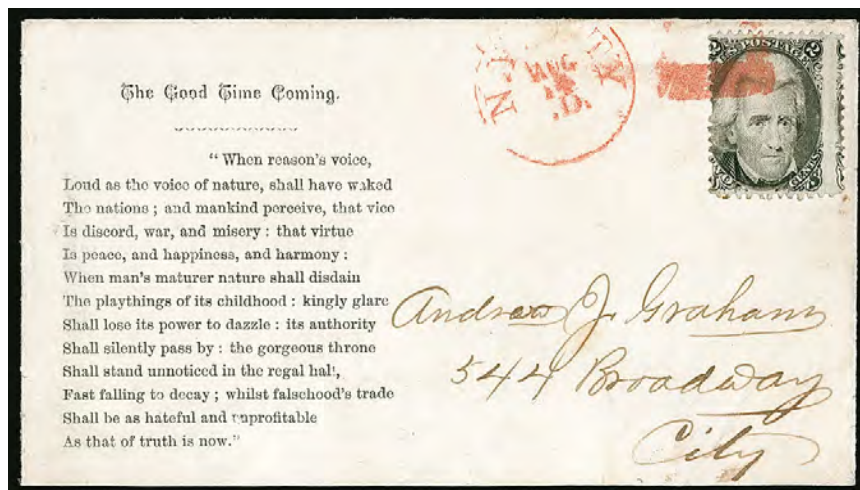 The Good Time Coming.
"When reason's voice,
Loud as the voice of nature, shall have waked
The nations; and mankind perceive, that vice
Is discord, war, and misery: that virtue
Is peace, and happiness, and harmony:
When man's maturer nature shall disdain
The playthings of its childhood: kingly glare
Shall lose its power to dazzle: its authority
Shall silently pass by: the gorgeous throne
Shall stand unnoticed in the regal hall,
Fast falling to decay; whilst falsehood's trade
Shall be as hateful and unprofitable
As that of truth is now."
AUG
2 POSTAGE 2
CENTS
Andrew J. Graham
544 Broadway
City